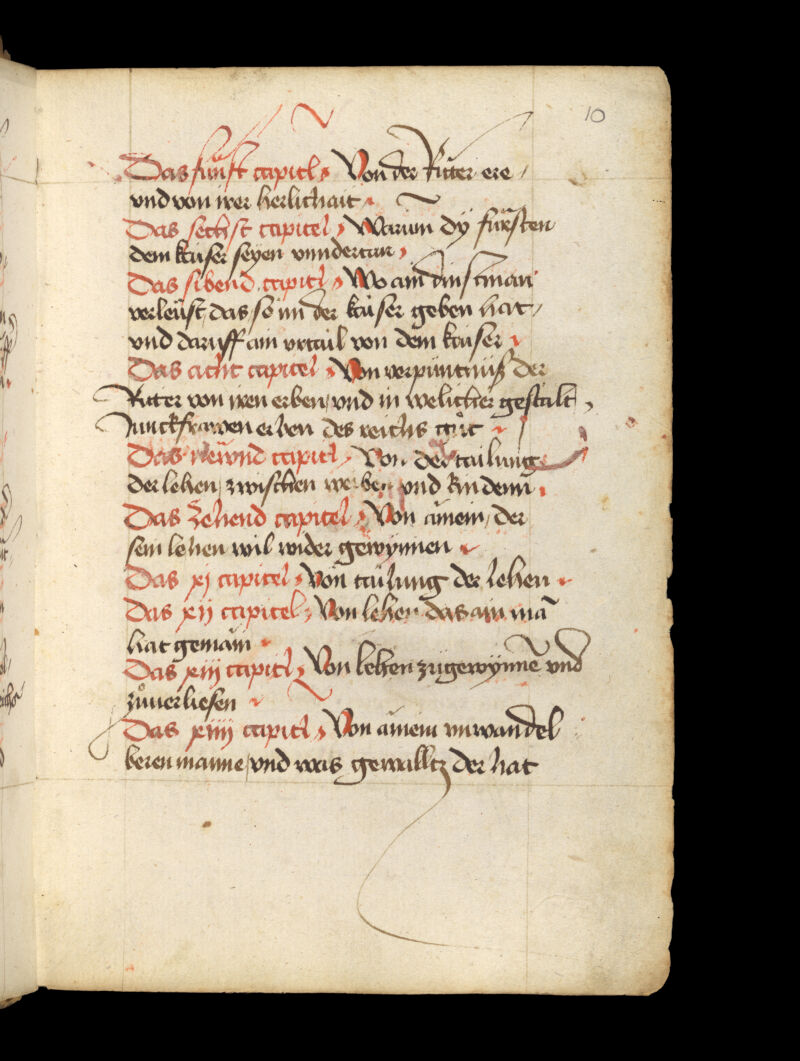 10
Das fünft capitl Von der Ritter ere /
vnd von irer herlichait
Das sechst capitel Warum dÿ fürsten
dem kaiser seyen vnndertan
Das sibend capitl Wo ain dinstman
verleüst das so im der kaiser geben hat /
vnd daruff ain vrtail von dem kaiser
Das acht capitel Von verpüntnüß der
Ritter von iren erben / vnd in welicher gestalt
Junckfrawen erben des reichs gůt
Das neẅnd capitl Von der tailung
der lehen / zwischen weiben vnd kindenn
Das Zehend capitel Von ainem / der
sein lehen wil wider gewÿnnen
Das xj capitel Von tailung der lehen
Das xij capitel Von lehen das ain mā
hat gemain
Das xiij capitl Von lehen zůgewÿnnē vnd
zůuerliesen
Das xiiij capitl Von ainem vnwandel
beren manne / vnd was gewalltz der hat